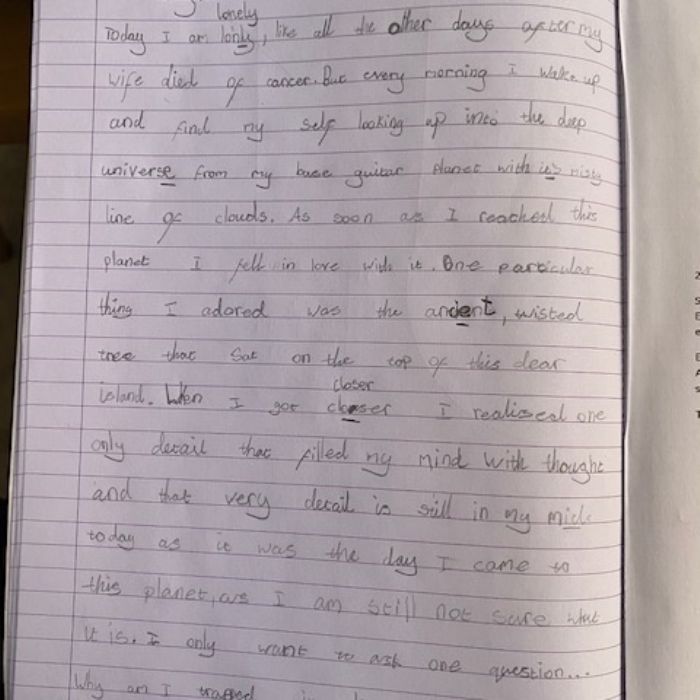 lonely
Today I am lonly, like all the other days after my
wife died of cancer. But every morning I wake up
and find my self looking up into the deep
universe from my base guitar planet with it's misty
line of clouds. As soon as I reached this
planet I fell in love with it. One particular
thing I adored was the ancient, wisted
tree that sat on the top of this dear
closer
island. When I got closser I realised one
only detail that filled my mind with thought
and that very detail is still in my mid
today as it was the day I came to
this planet, as I am still not sure what
it is. I only want to ask one question...
Why am I trapped